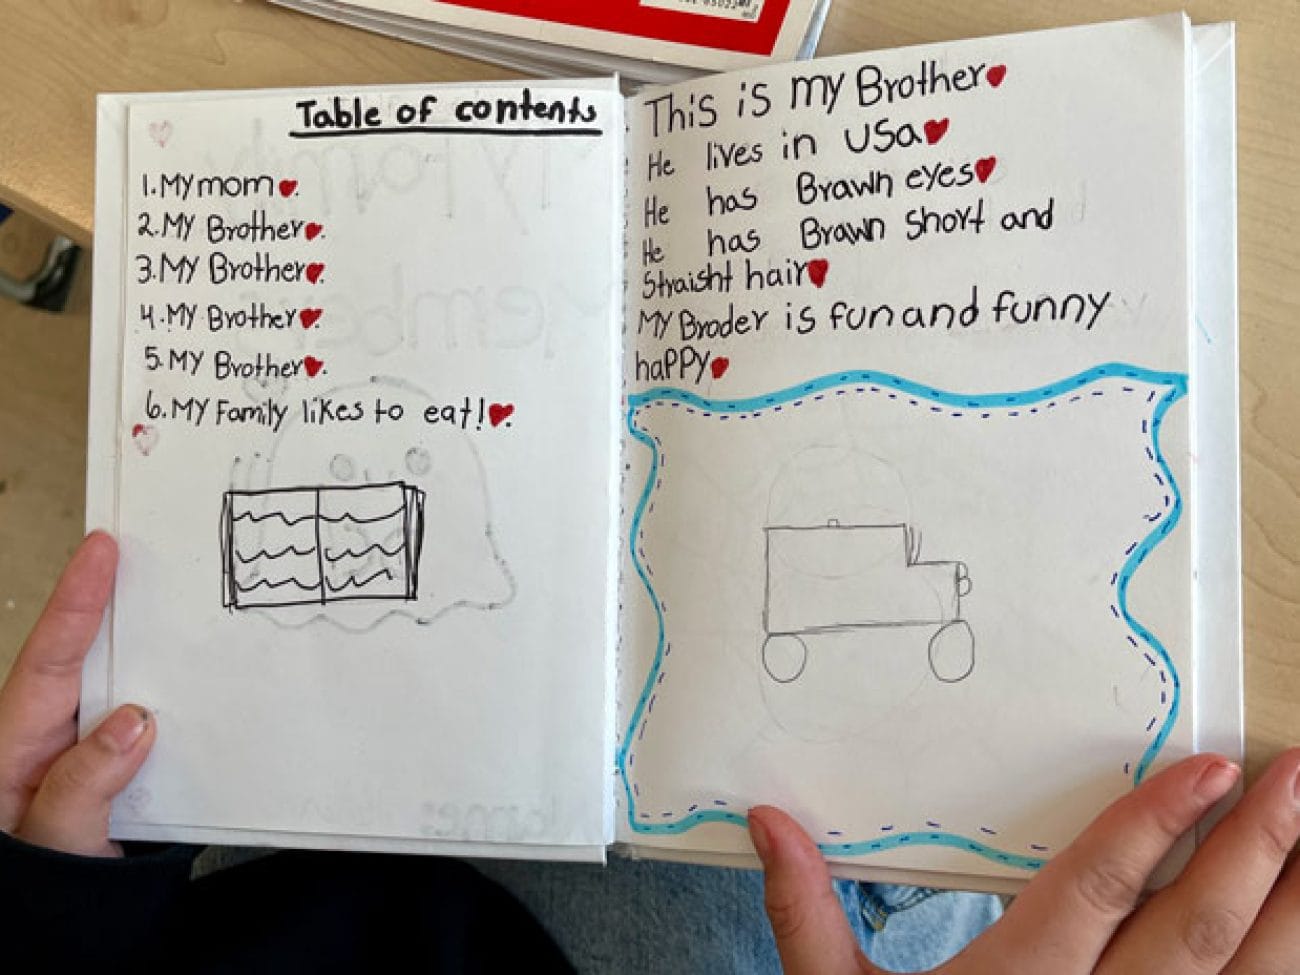 Table of contents
1. My mom
2. My Brother.
3. My Brother.
4. My Brother.
5. My Brother.
6. My Family likes to eat!
This is my Brother
He lives in USa
He has Brawn eyes
He has Brawn short and
Straisht hair
My Broder is fun and funny
happy